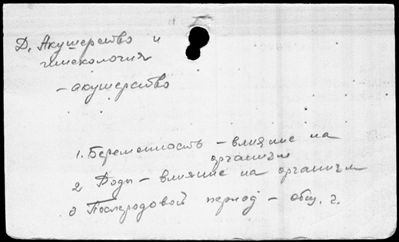 Д. Акушерство и
гинекология
– акушерство
1. Беременность – влияние на
организм
2 Роды – влияние на организм
3 Послеродовой период – общ. ч.